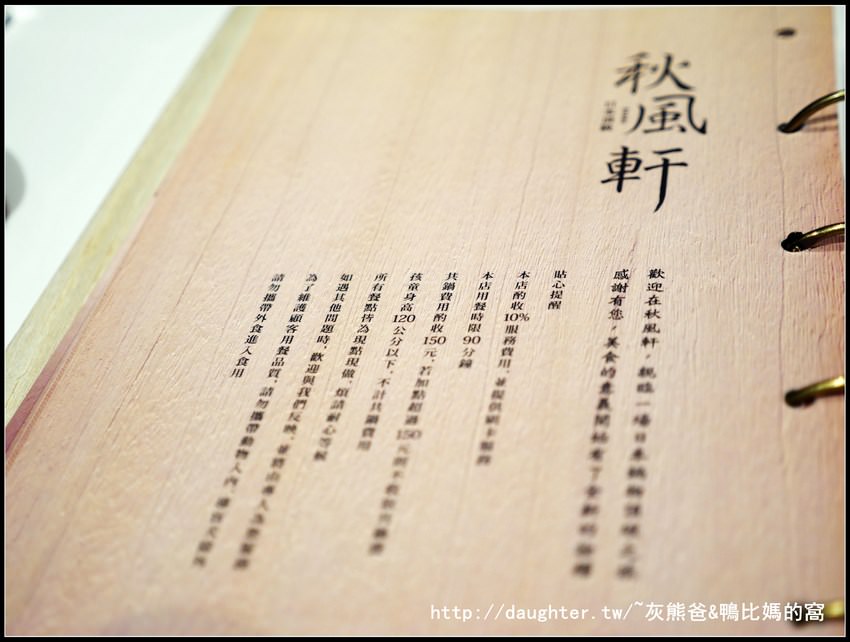 秋風軒
歡迎在秋風軒，親臨一場日本鍋物
感謝有您，美食的意義開始有了
貼心提醒
本店酌收10%服務費用，並提供刷卡服務
本店用餐時限90分鐘
共鍋費用酌收150元，若加點超過150元則不
孩童身高120公分以下，不計共鍋費用
所有餐點皆為現點現做，煩請耐心等候
如遇其他問題時，歡迎與我們反映，並將由專人為您服務
為了維護顧客用餐品質，請勿攜帶動物入內，導盲犬除外
請勿攜帶外食進入食用
http://daughter.tw/~灰熊爸&鴨比媽的窩